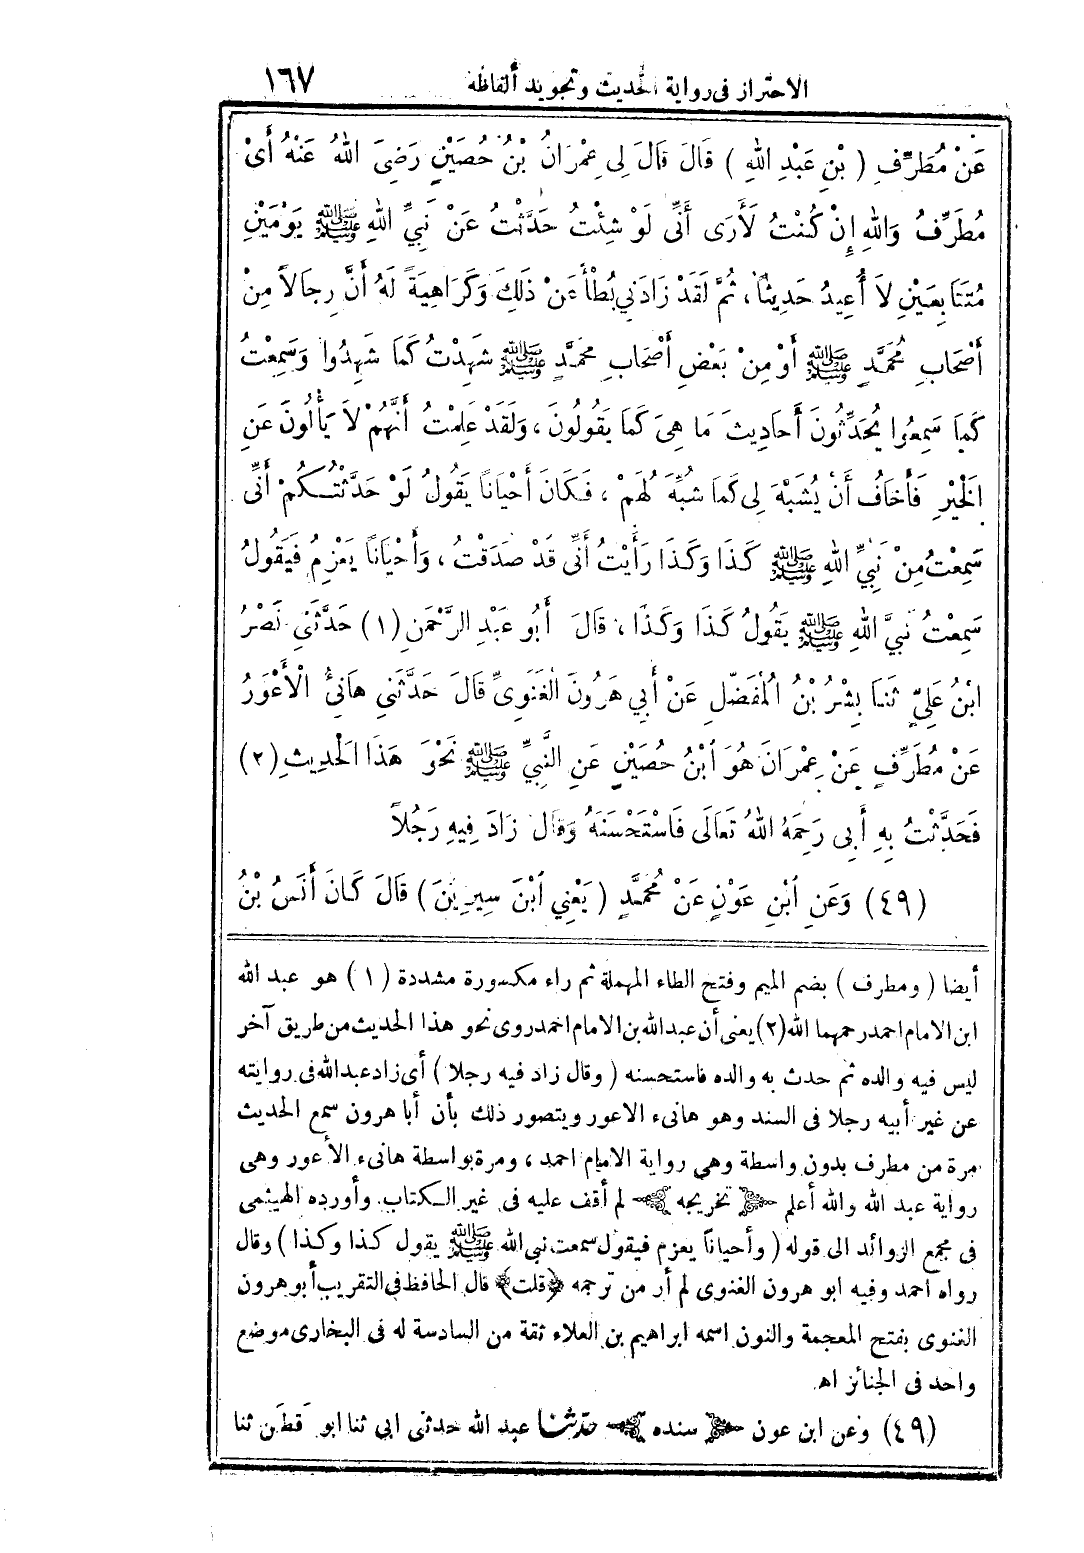 الاحتراز فى رواية الحديث وتجويد ألفاظه ١٦٧
عَنْ مُطَرِّفِ ( بْنِ عَبْدِ اللهِ ) قَالَ قَالَ لِى عِمْرَانُ بْنُ حُصَيْنٍ رَضِىَ اللهُ عَنْهُ أَىْ
مُطَرِّفُ وَاللهِ إِنْ كُنْتُ لَأَرَى أَنِّى لَوْ شِئْتُ حَدَّثْتُ عَنْ نَبِيِّ اللهِ ﷺ يَوْمَيْنِ
مُتَتَابِعَيْنِ لاَ أُعِيدُ حَدِيثًا، ثُمَّ لَقَدْ زَادَنِي بُطْأً عَنْ ذَلِكَ وَكَرَاهِيَةً لَهُ أَنَّ رِجَالاً مِنْ
أَصْحَابِ مُحَمَّدٍ ﷺ أَوْ مِنْ بَعْضِ أَصْحَابِ مُحَمَّدٍ ﷺ شَهِدْتُ كَمَا شَهِدُوا وَسَمِعْتُ
كَمَا سَمِعُوا يُحَدِّثُونَ أَحَادِيثَ مَا هِىَ كَمَا يَقُولُونَ، وَلَقَدْ عَلِمْتُ أَنَّهُمْ لاَ يَأْلُونَ عَنِ
الْخَيْرِ فَأَخَافُ أَنْ يُشَبَّهَ لِى كَمَا شُبِّهَ لَهُمْ ، فَكَانَ أَحْيَانًا يَقُولُ لَوْ حَدَّثْتُكُمْ أَنِّى
سَمِعْتُ مِنْ نَبِيِّ اللهِ ﷺ كَذَا وَكَذَا رَأَيْتُ أَنِّى قَدْ صَدَقْتُ ، وَأَحْيَانًا يَعْزِمُ فَيَقُولُ
سَمِعْتُ نَبِيَّ اللهِ ﷺ يَقُولُ كَذَا وَكَذَا ، قَالَ أَبُو عَبْدِ الرَّحْمَنِ (١) حَدَّثَنِى نَصْرُ
ابْنُ عَلِيٍّ ثَنَا بِشْرُ بْنُ الْمُفَضَّلِ عَنْ أَبِي هَرُونَ الْغَنَوِىِّ قَالَ حَدَّثَنِى هَانِئُ الْأَعْوَرُ
عَنْ مُطَرِّفٍ عَنْ عِمْرَانَ هُوَ ابْنُ حُصَيْنٍ عَنِ النَّبِيِّ ﷺ نَحْوَ هَذَا الْحَدِيثِ (٢)
فَحَدَّثْتُ بِهِ أَبِى رَحِمَهُ اللهُ تَعَالَى فَاسْتَحْسَنَهُ وَقَالَ زَادَ فِيهِ رَجُلاً
(٤٩) وَعَنِ ابْنِ عَوْنٍ عَنْ مُحَمَّدٍ ( يَعْنِي ابْنَ سِيرِينَ ) قَالَ كَانَ أَنَسُ بْنُ
أيضا ( ومطرف ) بضم الميم وفتح الطاء المهملة ثم راء مكسورة مشددة (١) هو عبد الله
ابن الامام احمد رحمهما الله (٢) يعنى أن عبد الله بن الامام احمد روى نحو هذا الحديث من طريق آخر
ليس فيه والده ثم حدث به والده فاستحسنه ( وقال زاد فيه رجلا ) أى زاد عبد الله فى روايته
عن غير أبيه رجلا فى السند وهو هانىء الاعور ويتصور ذلك بأن أبا هرون سمع الحديث
مرة من مطرف بدون واسطة وهى رواية الامام احمد ، ومرة بواسطة هانىء الأعور وهى
رواية عبد الله والله أعلم تخريجه لم أقف عليه فى غير الكتاب وأورده الهيثمى
فى مجمع الزوائد الى قوله ( وأحيانا يعزم فيقول سمعت نبى الله ﷺ يقول كذا وكذا ) وقال
رواه احمد وفيه ابو هرون الغنوى لم أر من ترجمه ﴿قلت﴾ قال الحافظ فى التقريب أبو هرون
الغنوى بفتح المعجمة والنون اسمه ابراهيم بن العلاء ثقة من السادسة له فى البخارى موضع
واحد فى الجنائز اه
(٤٩) وعن ابن عون سنده حدثنا عبد الله حدثنى ابى ثنا ابو قطن ثنا